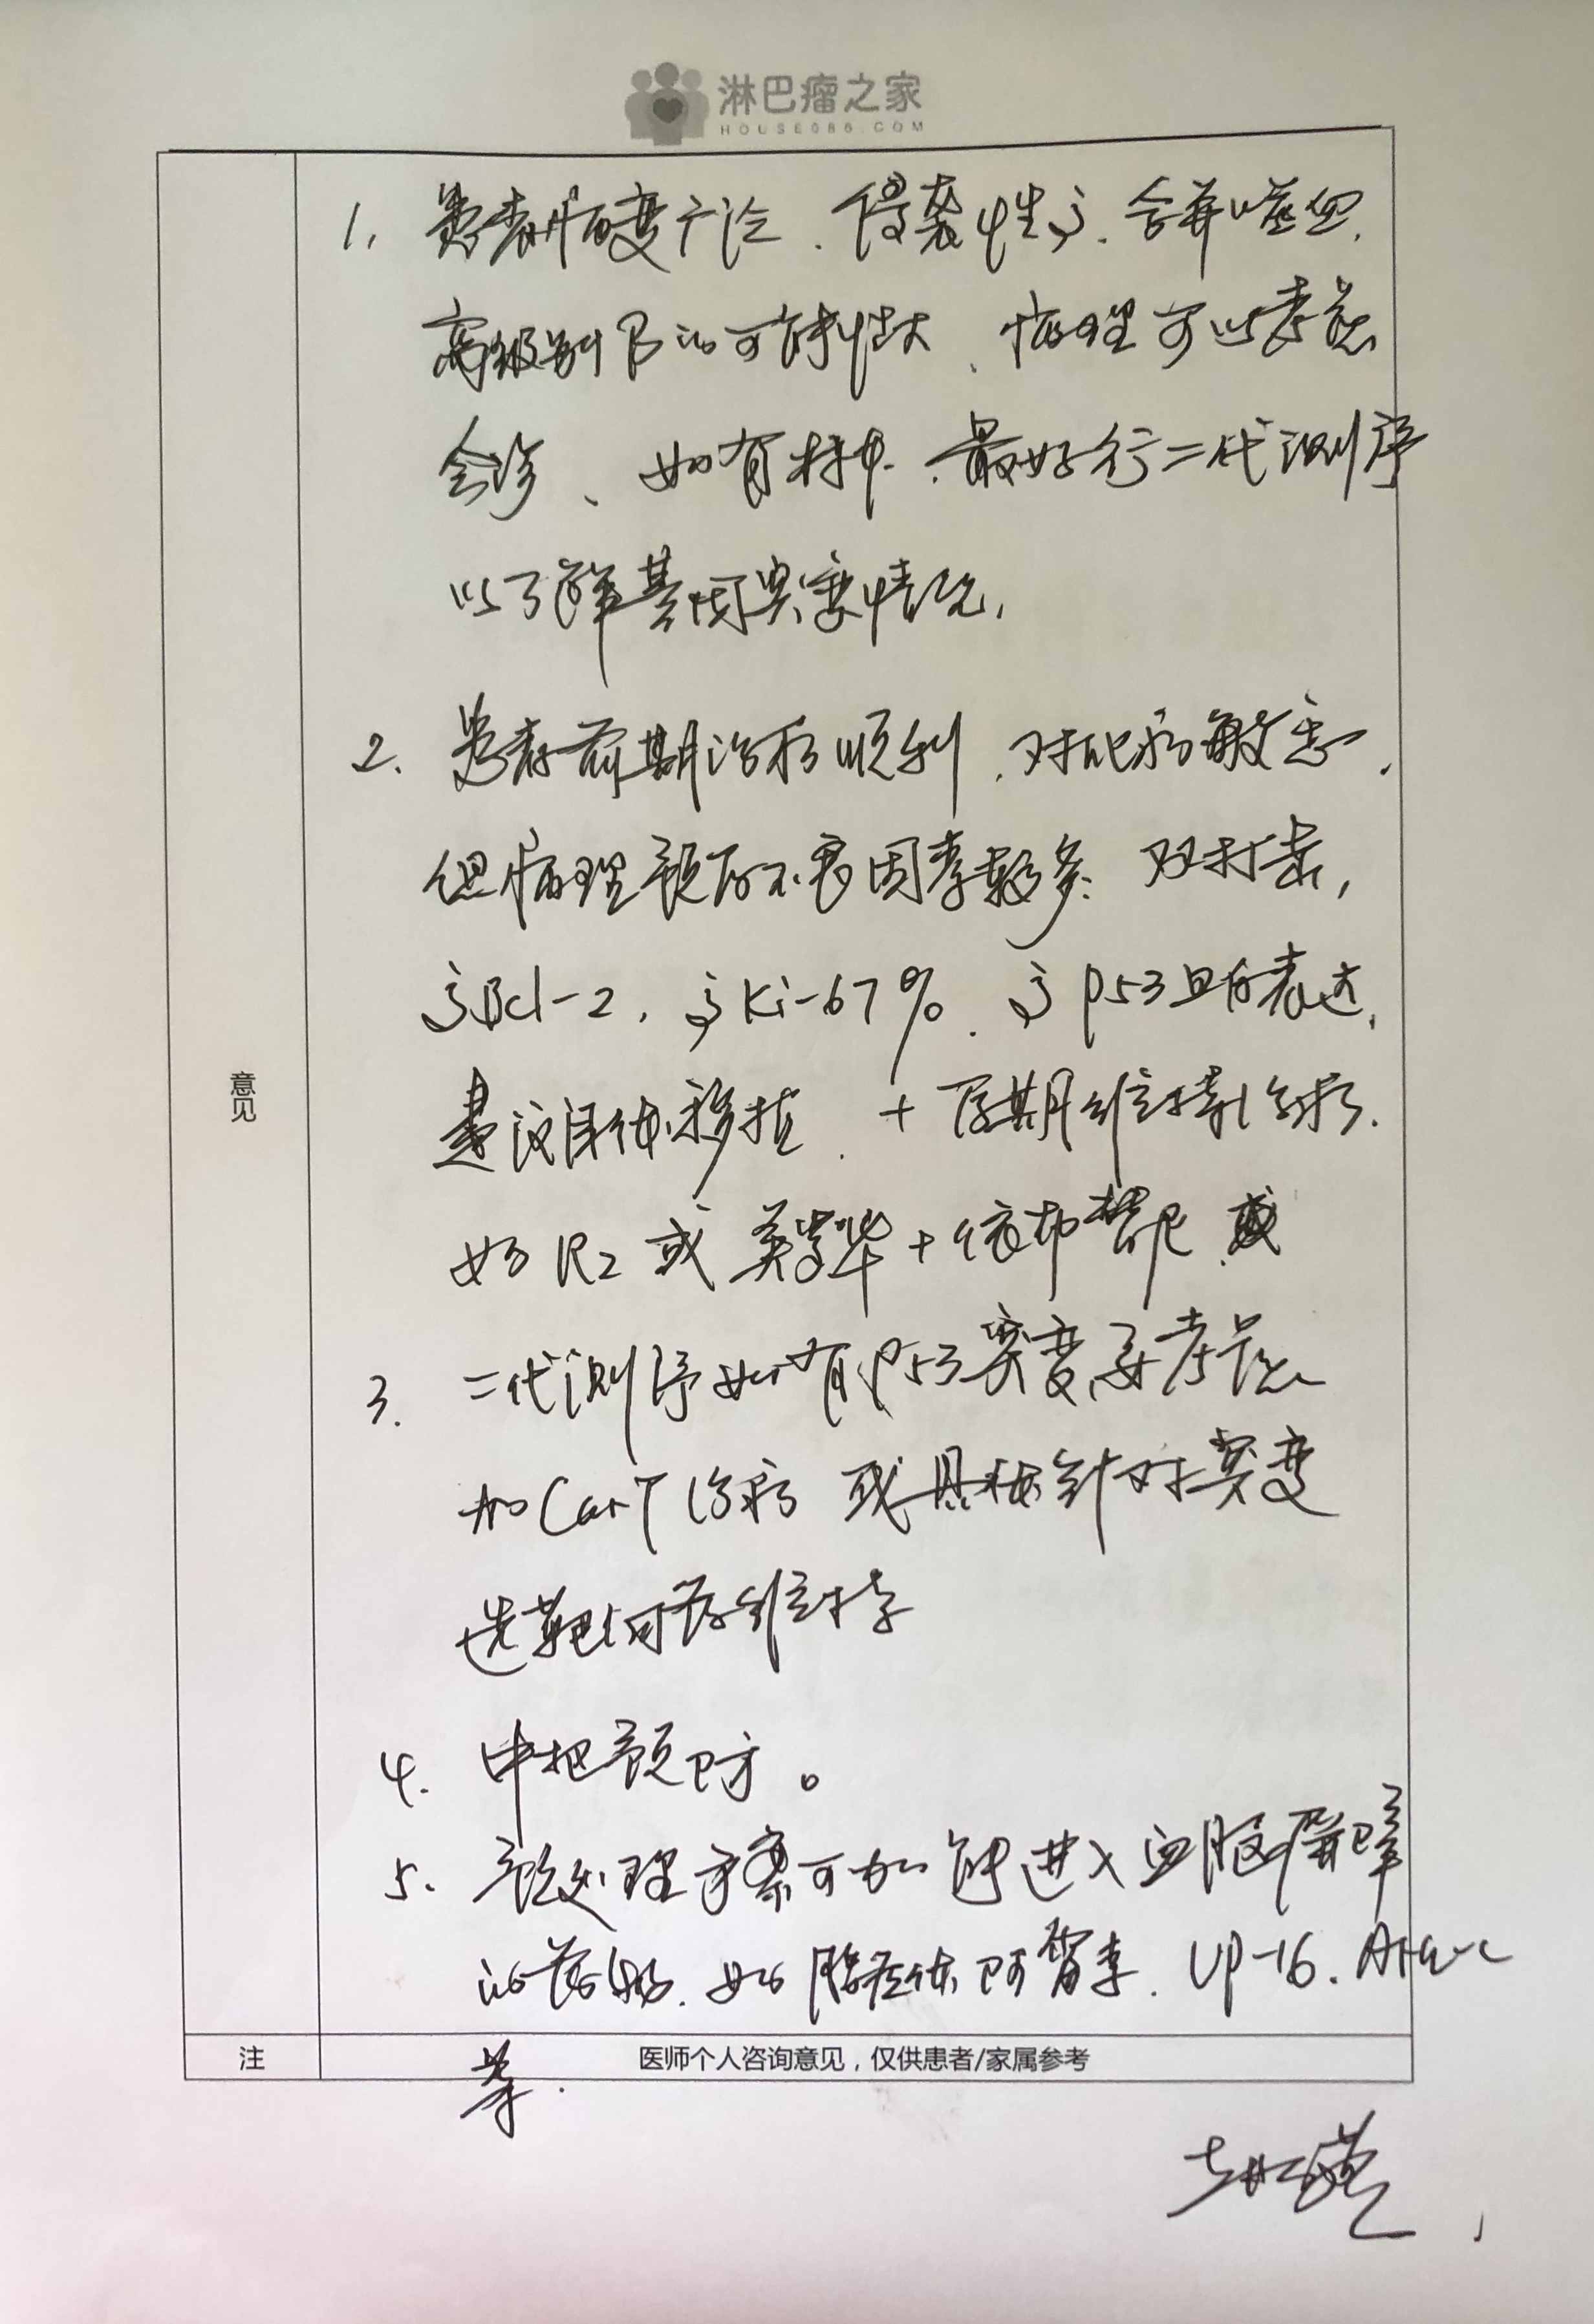 淋巴瘤之家
HOUSE086.COM
意见
1. 患者病变广泛、侵袭性高、合并噬血、
高级别B的可能性大、病理可以考虑
会诊、如有标本、最好行二代测序
以了解基因突变情况,
2. 患者前期治疗顺利、对化疗敏感、
但病理预后不良因素较多、双打击,
高Bcl-2, 高Ki-67%、高p53蛋白表达,
建议自体移植、+后期维持治疗.
如R2或美罗华+依布替尼、或
3. 二代测序如有p53突变、要考虑
加CarT治疗或具体针对突变
选靶向药维持
4. 中枢预防。
5. 预处理方案可加能进入血脑屏障
的药物、如脂质体阿霉素、VP-16、Ara-c
等.
注
医师个人咨询意见,仅供患者/家属参考